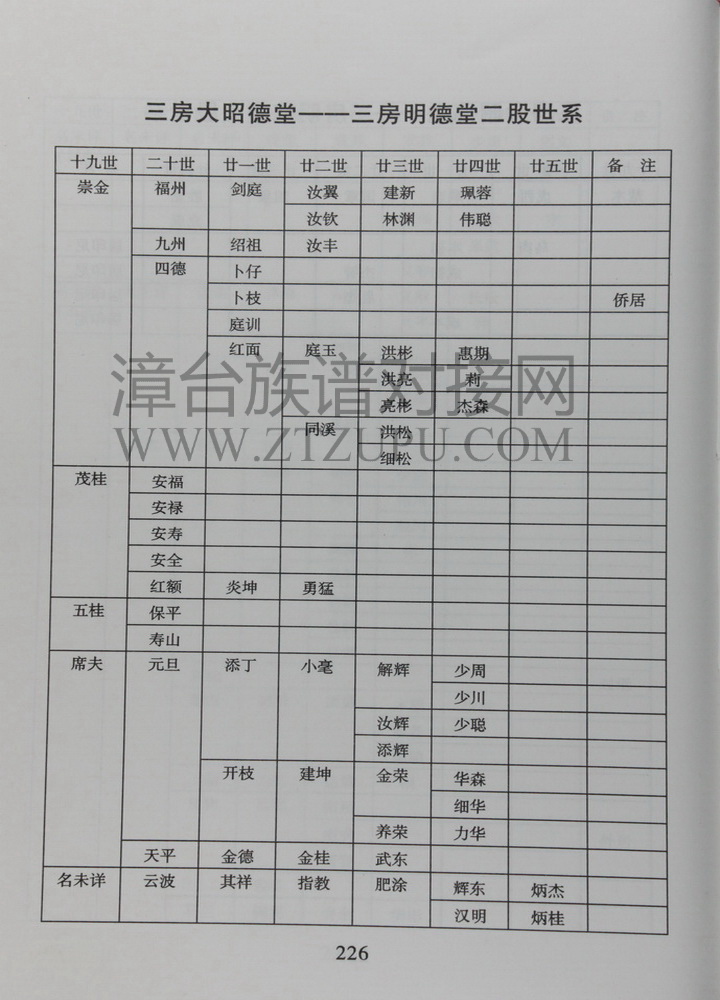 三房大昭德堂——三房明德堂二股世系
十九世 二十世 廿一世 廿二世 廿三世 廿四世 廿五世 备 注
崇金 福州 剑庭 汝翼 建新 珮蓉
汝钦 林渊 伟聪
九州 绍祖 汝丰
四德 卜仔
卜枝 侨居
庭训
红面 庭玉 洪彬 惠期
洪亮 莉
亮彬 杰森
同溪 洪松
细松
茂桂 安福
安禄
安寿
安全
红额 炎坤 勇猛
五桂 保平
寿山
席夫 元旦 添丁 小毫 解辉 少周
少川
汝辉 少聪
添辉
开枝 建坤 金荣 华森
细华
养荣 力华
天平 金德 金桂 武东
名未详 云波 其祥 指教 肥涂 辉东 炳杰
汉明 炳桂
226
漳台族谱对接网
WWW.ZTZUPU.COM